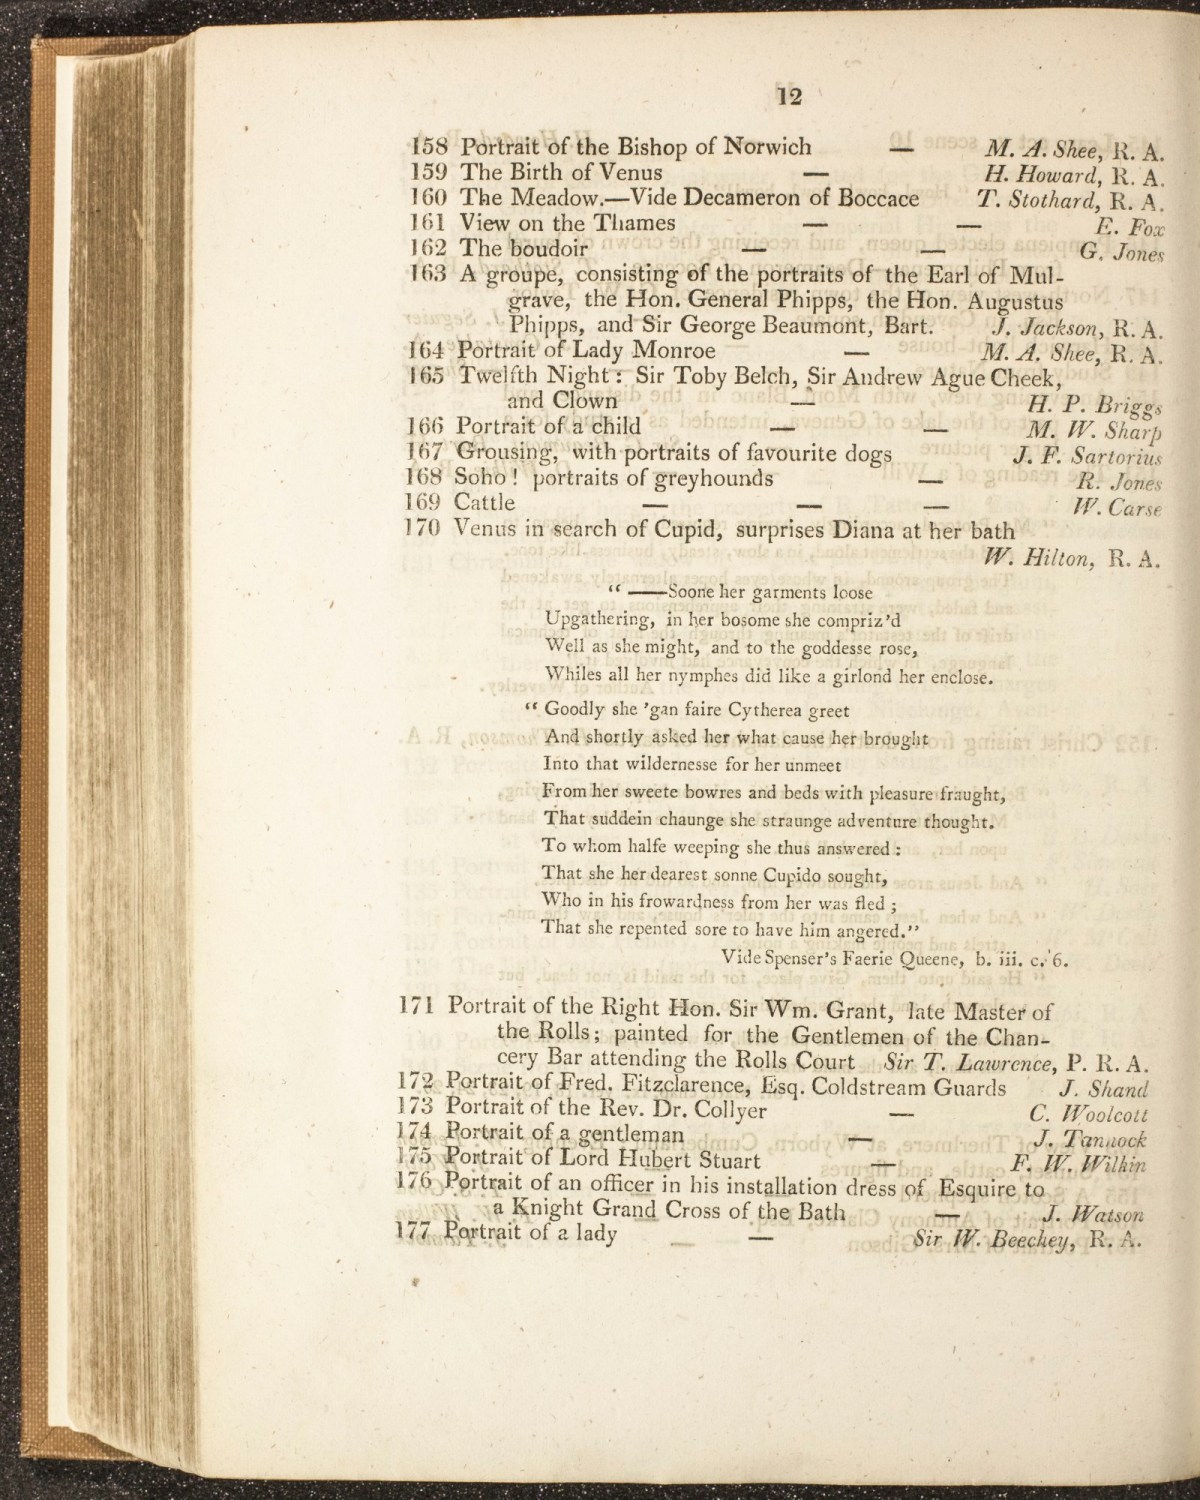 12
158 Portrait of the Bishop of Norwich — M. A. Shee, R. A.
159 The Birth of Venus — H. Howard, R. A.
160 The Meadow.—Vide Decameron of Boccace T. Stothard, R. A.
161 View on the Thames — — E. Fox
162 The boudoir — — G. Jones
163 A groupe, consisting of the portraits of the Earl of Mul-
grave, the Hon. General Phipps, the Hon. Augustus
Phipps, and Sir George Beaumont, Bart. J. Jackson, R. A.
164 Portrait of Lady Monroe — M. A. Shee, R. A.
165 Twelfth Night: Sir Toby Belch, Sir Andrew Ague Cheek,
and Clown — H. P. Briggs
166 Portrait of a child — — M. W. Sharp
167 Grousing, with portraits of favourite dogs J. F. Sartorius
168 Soho! portraits of greyhounds — R. Jones
169 Cattle — — — W. Carse
170 Venus in search of Cupid, surprises Diana at her bath
W. Hilton, R. A.
“ ——Soone her garments loose
Upgathering, in her bosome she compriz’d
Well as she might, and to the goddesse rose,
Whiles all her nymphes did like a girlond her enclose.
“ Goodly she ’gan faire Cytherea greet
And shortly asked her what cause her brought
Into that wildernesse for her unmeet
From her sweete bowres and beds with pleasure fraught,
That suddein chaunge she straunge adventure thought.
To whom halfe weeping she thus answered :
That she her dearest sonne Cupido sought,
Who in his frowardness from her was fled ;
That she repented sore to have him angered.”
Vide Spenser’s Faerie Queene, b. iii. c. 6.
171 Portrait of the Right Hon. Sir Wm. Grant, late Master of
the Rolls; painted for the Gentlemen of the Chan-
cery Bar attending the Rolls Court Sir T. Lawrence, P. R. A.
172 Portrait of Fred. Fitzclarence, Esq. Coldstream Guards J. Shand
173 Portrait of the Rev. Dr. Collyer — C. Woolcott
174 Portrait of a gentleman — J. Tannock
175 Portrait of Lord Hubert Stuart — F. W. Wilkin
176 Portrait of an officer in his installation dress of Esquire to
a Knight Grand Cross of the Bath — J. Watson
177 Portrait of a lady — — Sir W. Beechey, R. A.